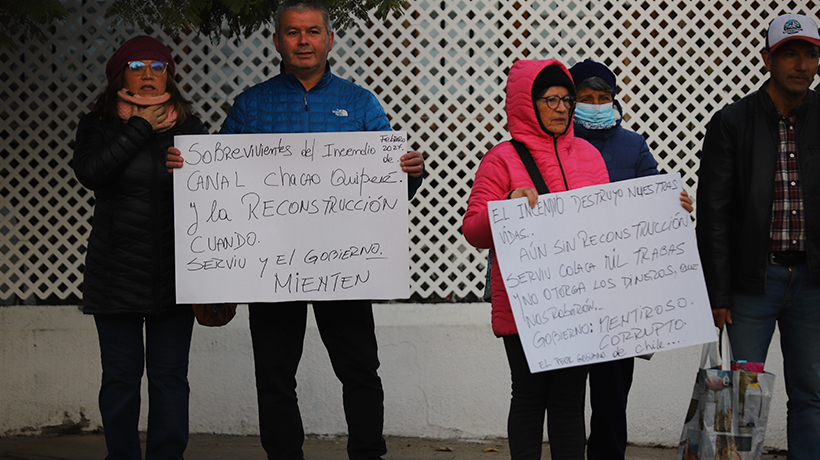 Sobrevivientes del Incendio
Febrero
de
2024.
CANAL Chacao Quilpué.
y la RECONSTRUCCIÓN
CUANDO.
SERVIU y EL GOBIERNO.
MIENTEN
THE NORTH FACE
EL INCENDIO DESTRUYO NUESTRAS
VIDAS.
AÚN SIN RECONSTRUCCIÓN
SERVIU COLOCA MIL TRABAS
Y NO OTORGA LOS DINEROS, QUE
NOS ROBARÓN...
GOBIERNO: MENTIROSO.
CORRUPTO.
EL PEOR GOBIERNO de CHILE...